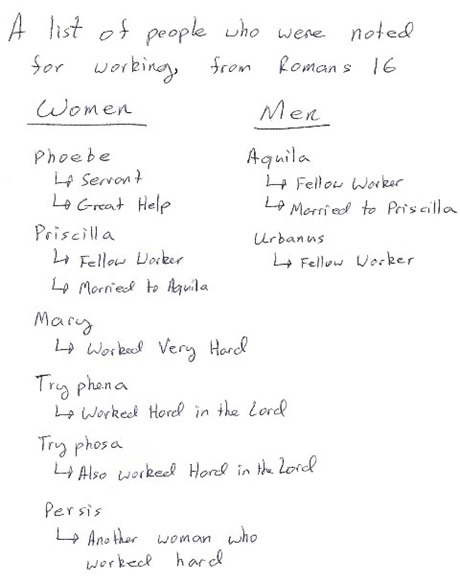 A list of people who were noted
for working, from Romans 16
Women
Phoebe
↳ Servant
↳ Great Help
Priscilla
↳ Fellow Worker
↳ Married to Aquila
Mary
↳ Worked Very Hard
Tryphena
↳ Worked Hard in the Lord
Tryphosa
↳ Also worked Hard in the Lord
Persis
↳ Another woman who
worked hard
Men
Aquila
↳ Fellow Worker
↳ Married to Priscilla
Urbanus
↳ Fellow Worker